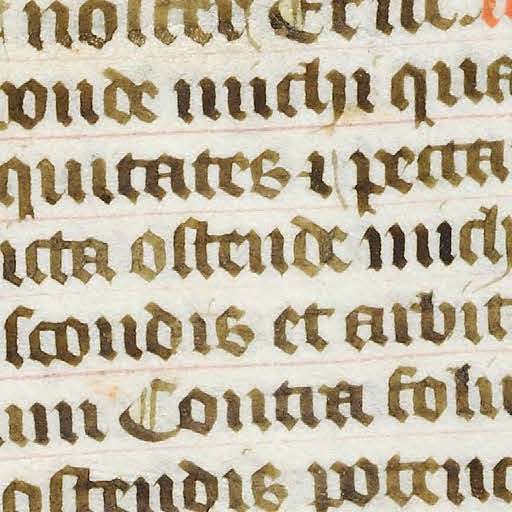 nostri Et ne
onde michi qua
quitates ⁊ pecca
icta ostende mich
scondis et arbit
um Contra foliu
ostendis potenc